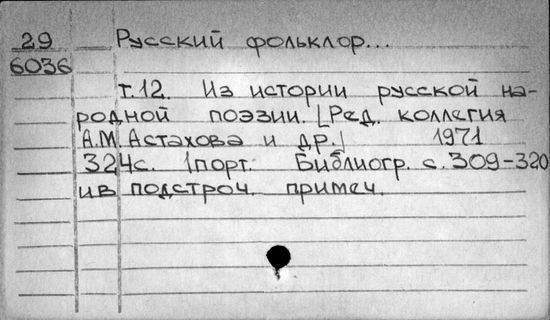 29 Русский фольклор...
6036
т.12. Из истории русской на-
родной поэзии. [Ред. коллегия
А.М.Астахова и др.] 1971
324с. 1порт. Библиогр. с.309-320
ив подстроч. примеч.